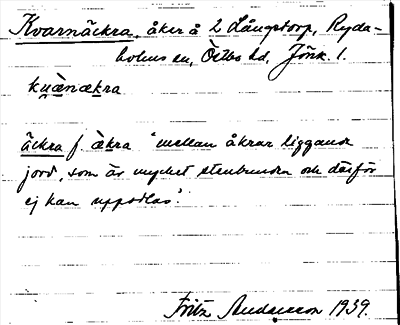 Kvarnäckra, åker å 2 Långstorp, Ryda-
holms sn, Östbo hd, Jönk. l.
ku̯ànækra
äckra f. æ̀kra "mellan åkrar liggande
jord, som är mycket stenbunden och därför
ej kan uppodlas".
Fritz Andersson 1939.